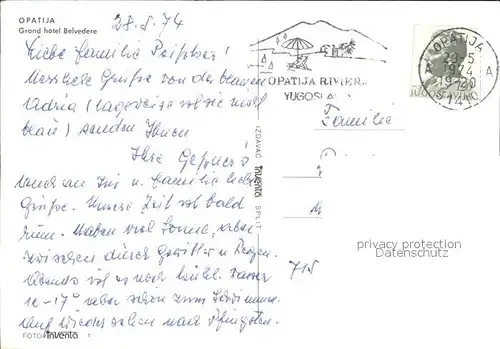 OPATIJA
Grand hotel Belvedere
28.5.74
Liebe Familie
Herzliche Grüsse von der blauen
Adria (tageweise ist sie nicht
blau) senden Ihnen
Ihre
auch an Sie u. Familie liebe
Grüsse. Unsere Zeit ist bald
rum. Haben viel Sonne, aber
zwischen durch Gewitter u. Regen.
Abends ist es noch kühl. Wasser
16-17° aber schon zum Schwimmen.
Auf Wiedersehen nach Pfingsten.
FOTO inventa
IZDAVAČ inventa SPLIT
OPATIJA RIVIERA
YUGOSLAVIA
OPATIJA
1974
19-20
51410
A A
Familie
715
privacy protection
Datenschutz